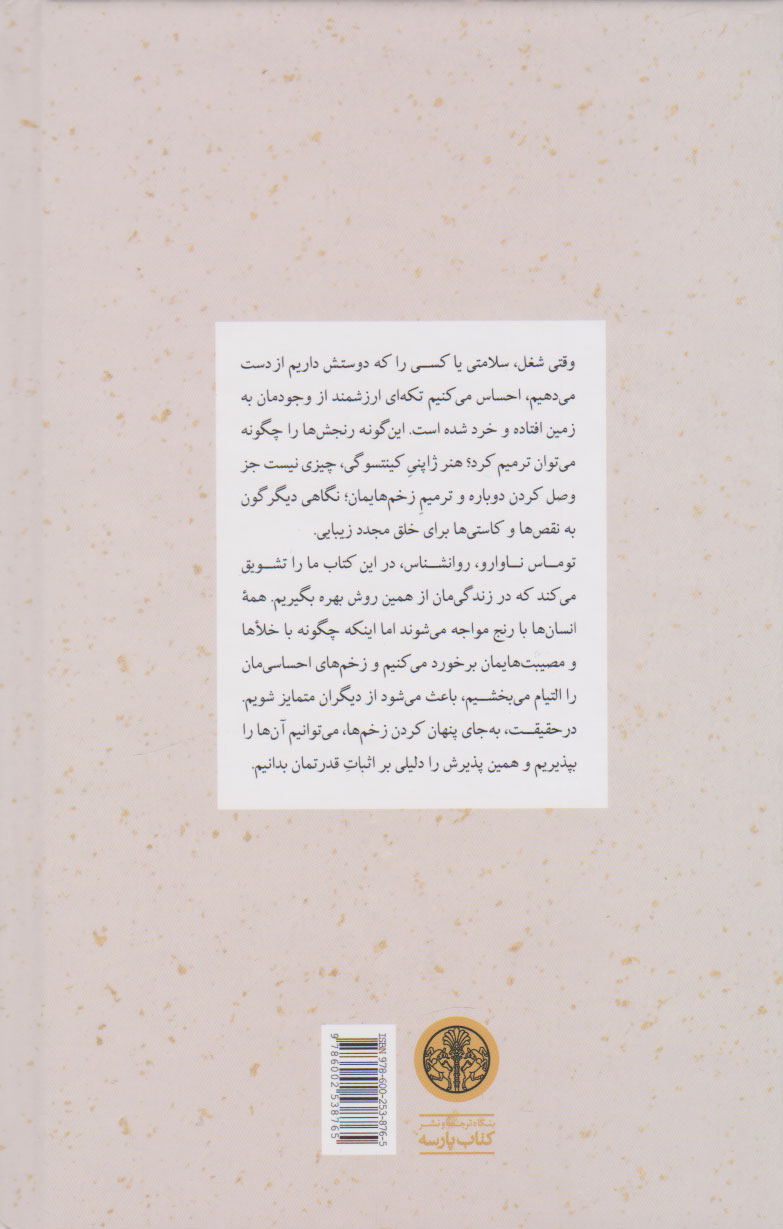 وقتی شغل، سلامتی یا کسی را که دوستش داریم از دست
می‌دهیم، احساس می‌کنیم تکه‌ای ارزشمند از وجودمان به
زمین افتاده و خرد شده است. این‌گونه رنجش‌ها را چگونه
می‌توان ترمیم کرد؟ هنر ژاپنیِ کینتسوگی، چیزی نیست جز
وصل کردن دوباره و ترمیمِ زخم‌هایمان؛ نگاهی دیگرگون
به نقص‌ها و کاستی‌ها برای خلق مجدد زیبایی.
توماس ناوارو، روانشناس، در این کتاب ما را تشویق
می‌کند که در زندگی‌مان از همین روش بهره بگیریم. همهٔ
انسان‌ها با رنج مواجه می‌شوند اما اینکه چگونه با خلأها
و مصیبت‌هایمان برخورد می‌کنیم و زخم‌های احساسی‌مان
را التیام می‌بخشیم، باعث می‌شود از دیگران متمایز شویم.
درحقیقت، به‌جای پنهان کردن زخم‌ها، می‌توانیم آن‌ها را
بپذیریم و همین پذیرش را دلیلی بر اثباتِ قدرتمان بدانیم.
بنگاه ترجمه و نشر
کتاب پارسه
ISBN 978-600-253-876-5
9786002538765